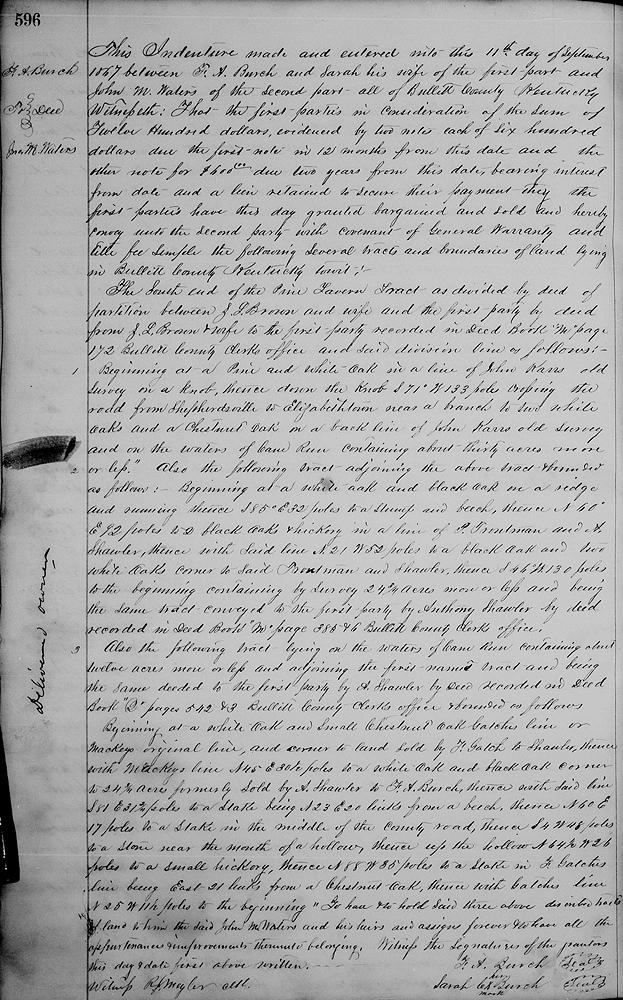 596
F. A. Burch
To } Deed
Jno M Waters
This Indenture made and entered into this 11th day of September
1867 between F. A. Burch and Sarah his wife of the first part and
John M. Waters of the second part all of Bullitt County Kentucky
Witnesseth: That the first parties in consideration of the sum of
Twelve Hundred dollars, evidenced by two notes each of six hundred
dollars due the first note in 12 months from this date and the
other note for $600.00 due two years from this date, bearing interest
from date and a lien retained to secure their payment they the
first parties have this day granted bargained and sold and hereby
convey unto the second party with covenant of General Warranty and
title fee simple the following several tracts and boundaries of land lying
in Bullitt County Kentucky towit:-
The South end of the Pine Tavern Tract as divided by deed of
partition between J. L Brown and wife and the first party by deed
from J. L. Brown & wife to the first party recorded in Deed Book "M" page
172 Bullitt County Clerks office and said division line as follows:-
1 Beginning at a Pine and white oak in a line of John Karrs old
survey on a knob, thence down the Knob S 71° W 133 pole crossing the
road from Shepherdsville to Elizabethtown near a branch to two white
oaks and a Chestnut oak on a back line of John Karrs old survey
and on the waters of Cane Run containing about thirty acres more
2 or less." Also the following tract adjoining the above tract & bounded
as follows:- Beginning at a white oak and black oak on a ridge
and running thence S 85° E 32 poles to a Stump and beech, thence N 60°
E 92 poles to 2 black oaks & hickory in a line of P. Troutman and A.
Shawler, thence with said line N 21 W 52 poles to a black oak and two
white oaks corner to said Troutman and Shawler, thence S 46 W 130 poles
to the beginning containing by survey 24¾ acres more or less and being
the same tract conveyed to the first party by Anthony Shawler by deed
recorded in Deed Book "M" page 385 & 6 Bullitt County Clerks office.
3 Also the following tract lying on the waters of Cane Run containing about
twelve acres more or less and adjoining the first named tract and being
the same deeded to the first party by A. Shawler by Deed recorded in Deed
Book pages 542 & 3 Bullitt County Clerks office & bounded as follows
Beginning at a white oak and small Chestnut oak Gatches line or
Mackeys original line, and corner to land sold by F. Gatch to Shawler, thence
with McCkeys line N 45 E 30½ poles to a white oak and black oak corner
to 24¾ acres formerly sold by A. Shawler to F. A. Burch, thence with said line
S 81 E 31½ poles to a stake being N 23 E 20 links from a beech, thence N 60 E
17 poles to a stake in the middle of the County road, thence S 4 W 48 poles
to a stone near the mouth of a hollow, thence up the hollow N 64½ W 26
poles to a small hickory, thence N 88 W 35 poles to a stake in F. Gatches
line being East 21 links from a Chestnut oak, thence with Gatches line
N 25 W poles to the beginning" To have & to hold said three above described tracts
of land to him the said John M Waters and his heirs and assigns forever & to have all the
appurtenances & improvements thereunto belonging. Witness the signatures of the grantors
this day & date first above written.
F. A. Burch Seal
Witness att.
Sarah C her X mark Burch Seal
Delivered owner